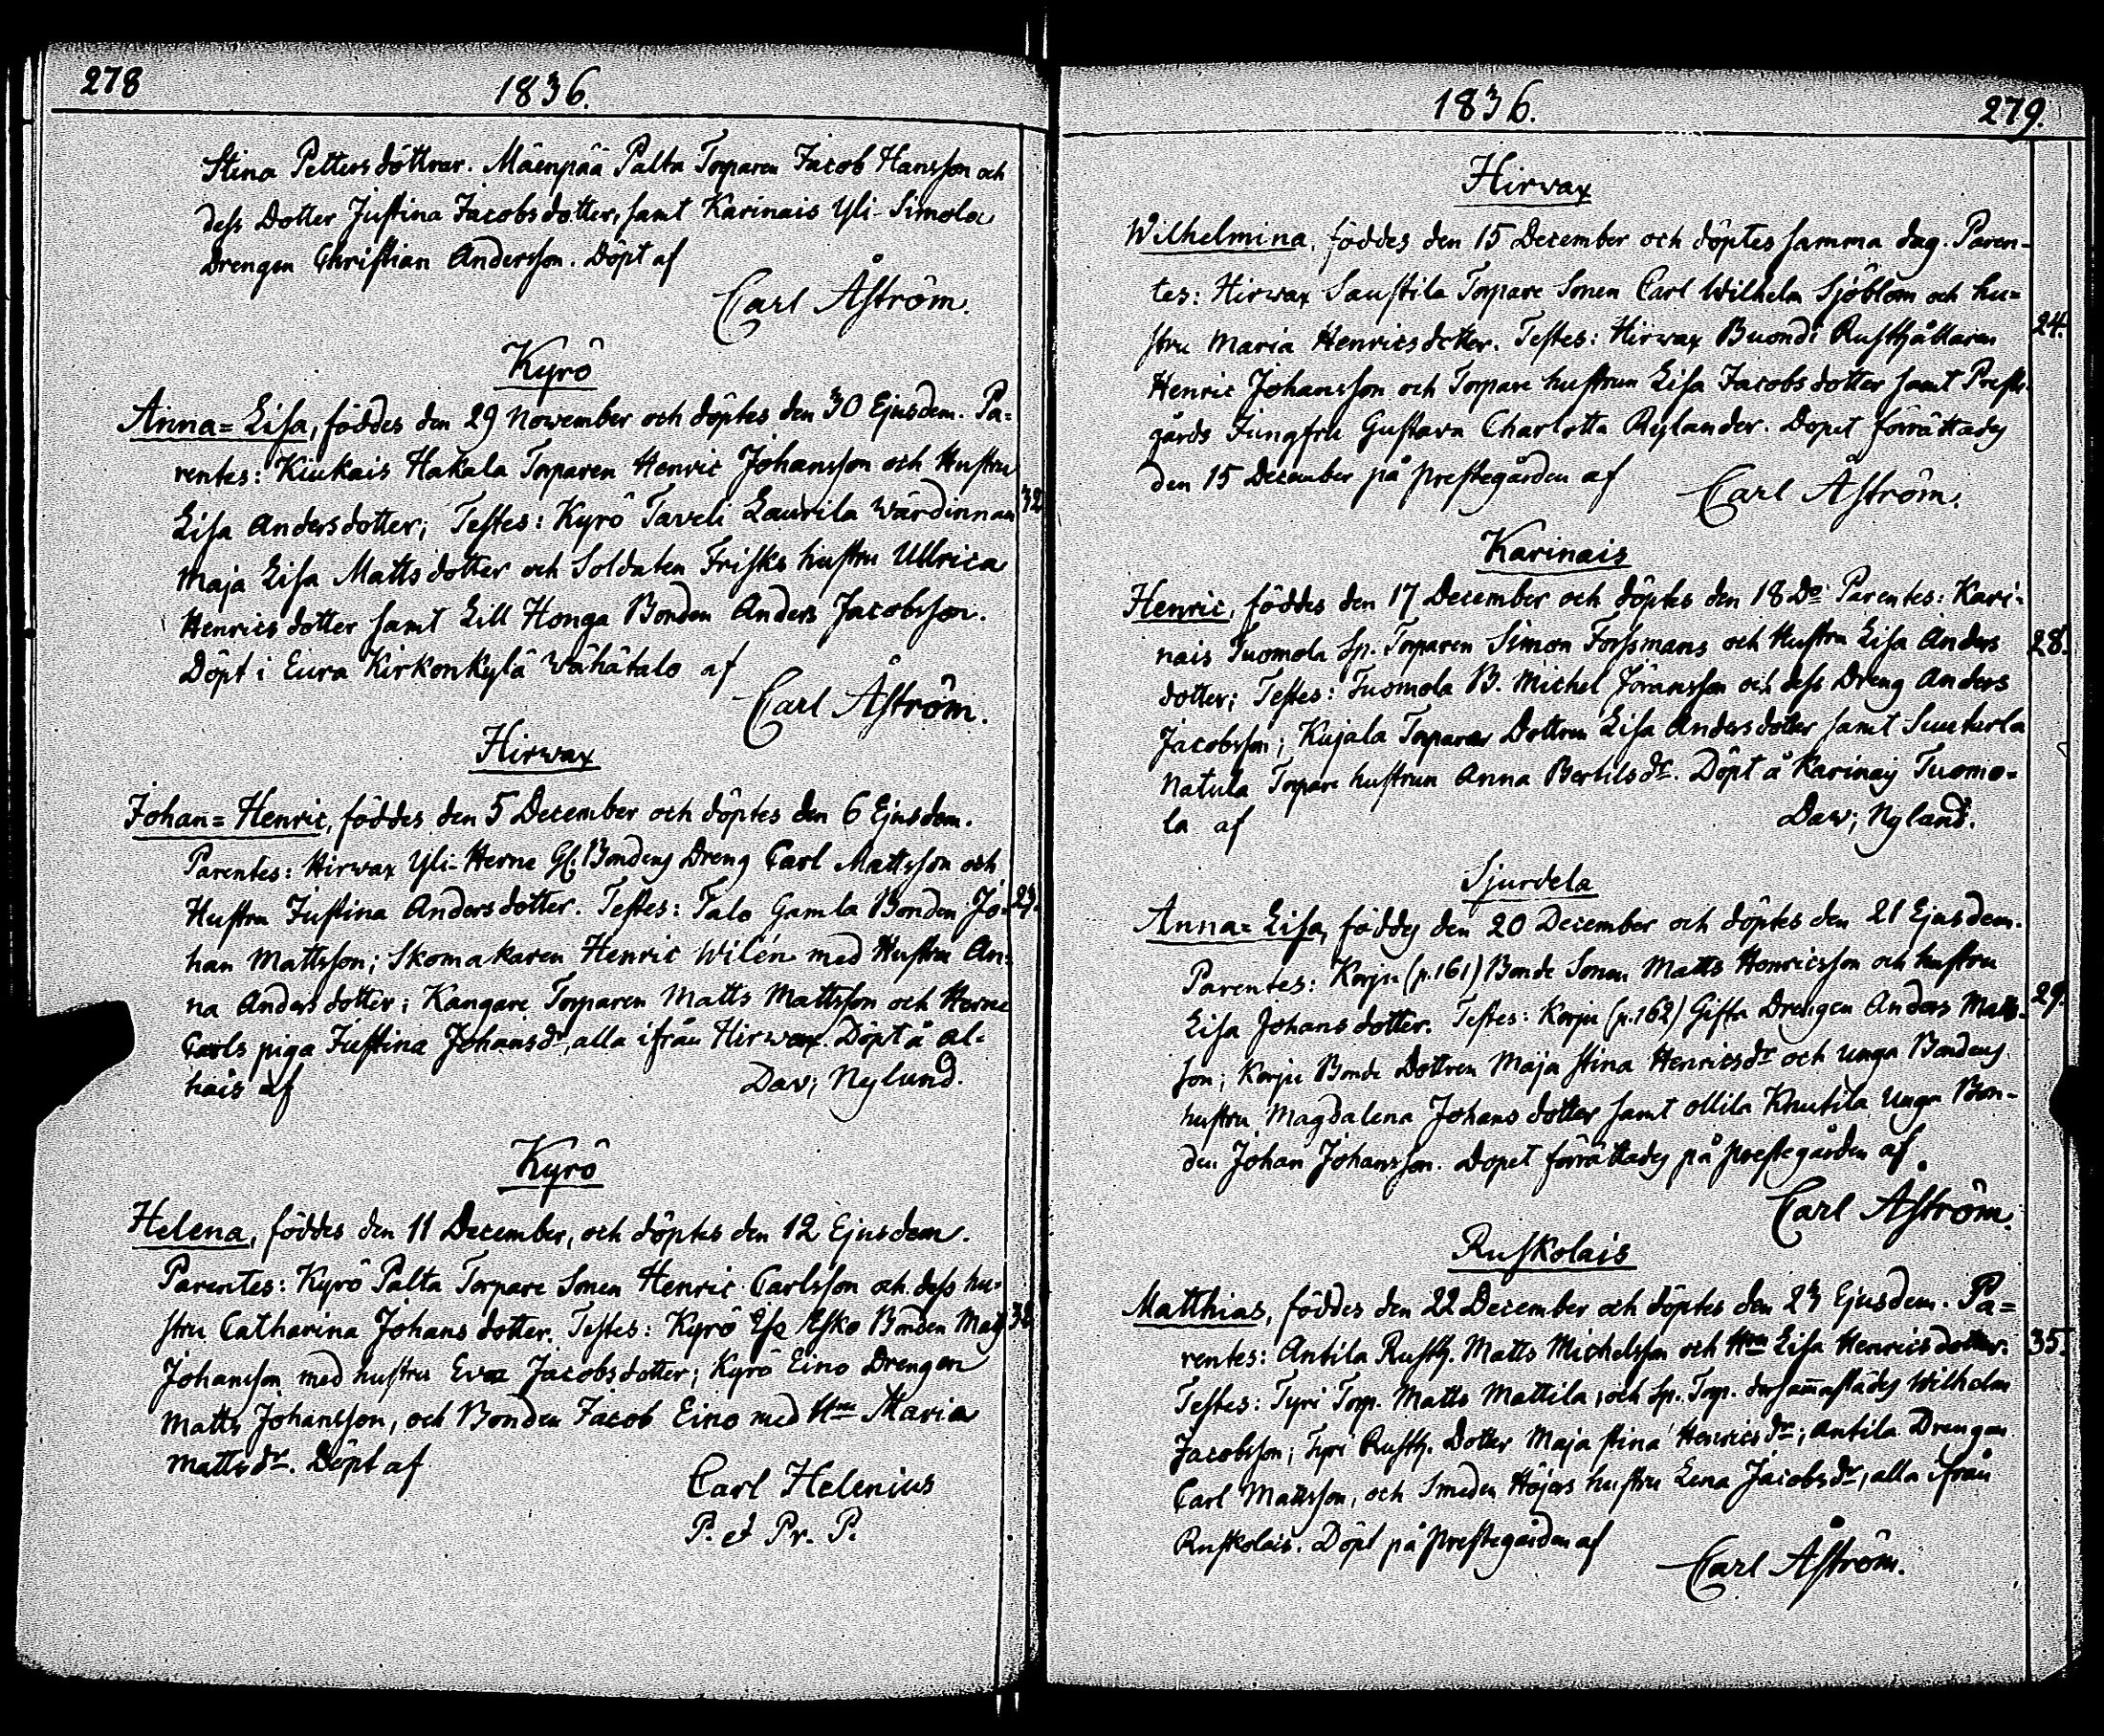 278
1836.
Stina Petters döttrar. Mäenpää Palta Torparen Jacob Hansson och
dess Dotter Justina Jacobsdotter, samt Karinais Yli-Simola
Drengen Christian Andersson. Döpt af
Carl Åström.
Kyrö
Anna=Lisa, föddes den 29 November och döptes den 30 Ejusdem. Pa=
rentes: Kiukais Hakala Torparen Henric Johansson och Hustru
Lisa Andersdotter; Testes: Kyrö Taveli Laurila Wärdinnan
32
Maja Lisa Mattsdotter och Soldaten Frisks hustru Ullrica
Henricsdotter samt Lill Honga Bonden Anders Jacobsson.
Döpt i Eura Kirkonkylä Wähätalo af
Carl Åström.
Hirwax
Johan=Henric, föddes den 5 December och döptes den 6 Ejusdem.
Parentes: Hirwax Yli-Herne Gl. Bondens Dreng Carl Mattsson och
Hustru Justina Andersdotter. Testes: Talo Gamla Bonden Jo=
han Mattsson; Skomakaren Henric Wilén med Hustru An=
na Andersdotter; Kangare Torparen Matts Mattsson och Herne
Carls piga Justina Johansdr, alla ifrån Hirwax. Döpt å al-
hais af
Dav; Nylund.
Kyrö
Helena, föddes den 11 December, och döptes den 12 Ejusdem.
Parentes: Kyrö Palta Torpare Sonen Henric Carlsson och dess hu=
stru Catharina Johansdotter. Testes: Kyrö Esko Bonden Matts
32
Johansson med hustru Eva Jacobsdotter; Kyrö Eino Drengen
Matts Johansson, och Bonden Jacob Eino med Hru Maria
Mattsdr. Döpt af
Carl Helenius
P. et Pr. P.
1836.
279.
Hirwax
Wilhelmina, föddes den 15 December och döptes samma dag. Paren-
tes: Hirwax Saustila Torpare Sonen Carl Wilhelm Sjöblom och hu=
stru Maria Henricsdotter. Testes: Hirwax Buondi Rusthållaren
24.
Henric Johansson och Torpare hustrun Lisa Jacobsdotter samt Prest-
gårds Jungfru Gustava Charlotta Rylander. Dopet förrättades
den 15 December på prestegården af
Carl Åström.
Karinais
Henric, föddes den 17 December och döptes den 18 Do Parentes: Kari-
nais Tuomola Sp. Torparen Simon Forssmans och Hustru Lisa Anders
28.
dotter; Testes: Tuomola B. Michel Jöransson och dess Dreng Anders
Jacobsson; Kujala Torpare Dottren Lisa Andersdotter samt Suuterla
Natula Torpare hustrun Anna Bertilsdr. Döpt å Karinais Tuomo=
la af
Dav; Nylund.
Sjurdela
Anna=Lisa, föddes den 20 December och döptes den 21 Ejusdem.
Parentes: Korju (p.161) Bonde Sonen Matts Henricsson och hustru
Lisa Johansdotter. Testes: Korju (p.162) Gifta Drengen Anders Matts-
29.
son; Korju Bonde Dottren Maja Stina Henricsdr och unga Bondens
hustru Magdalena Johansdotter samt Ollila Knutila unga Bon-
den Johan Johansson. Dopet förrättades på prestegården af
Carl Åström.
Ruskolais
Matthias, föddes den 22 December och döptes den 23 Ejusdem. Pa=
rentes: Antila Rusth. Matts Michelsson och Hru Lisa Henricsdotter.
35.
Testes: Tyri Torp. Matts Mattila, och Sp. Torp. dersammastädes Wilhelm
Jacobsson; Tyri Rusth. Dotter Maja Stina Henricsdr; Antila Drengen
Carl Mattsson, och Smeden Höjers hustru Lena Jacobsdr, alla ifrån
Ruskolais. Döpt på prestegården af
Carl Åström.